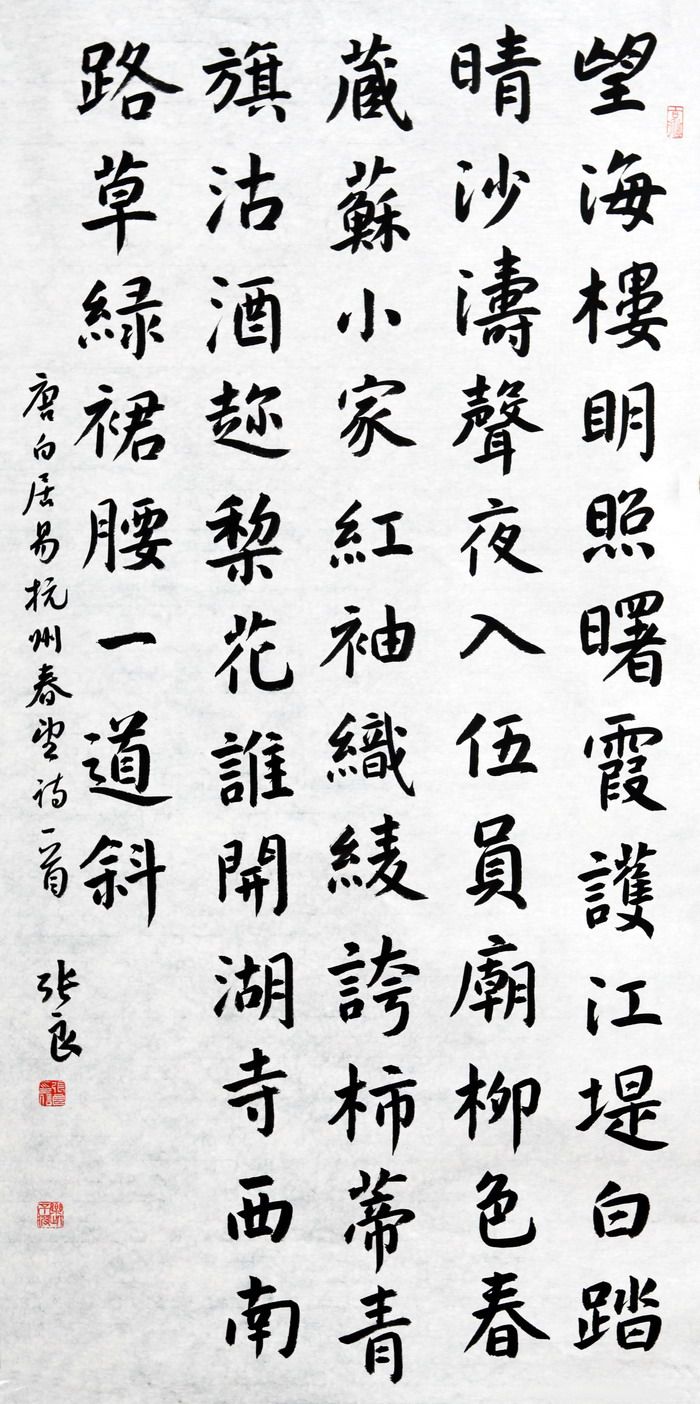 望海樓明照曙霞護江堤白踏
晴沙濤聲夜入伍員廟柳色春
藏蘇小家紅袖織綾誇柿蒂青
旗沽酒趂梨花誰開湖寺西南
路草緑裙腰一道斜
唐白居易杭州春望詩一首
張良